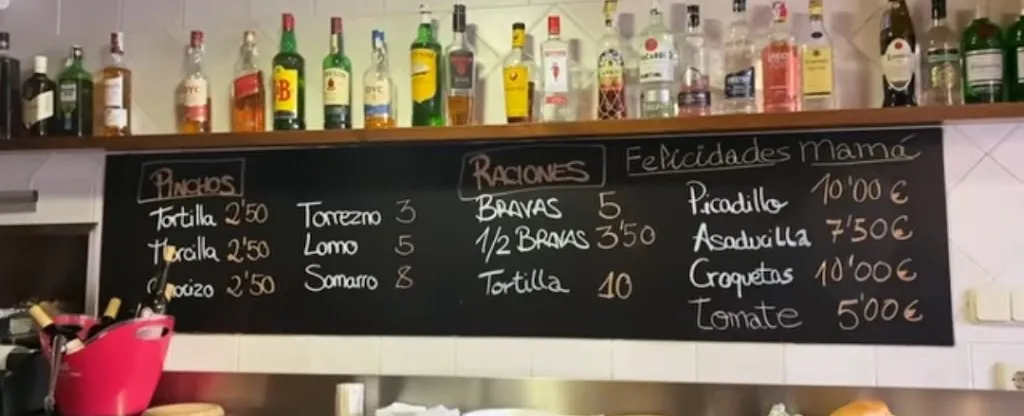 PINCHOS
Tortilla 2'50
Morcilla 2'50
Chorizo 2'50
Torrezno 3
Lomo 5
Somarro 8
RACIONES
BRAVAS 5
1/2 BRAVAS 3'50
Tortilla 10
Felicidades Mamá
Picadillo 10'00 €
Asaducilla 7'50 €
Croquetas 10'00 €
Tomate 5'00 €
DYC
J&B
DYC
BACARDI